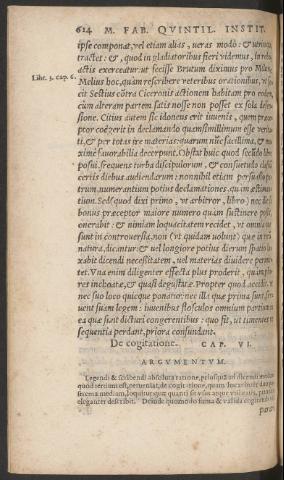 624 M. FAB. QVINTIL. INSTIT.
ipse componat, vel etiam alias, veras modò: & utrinque
tractet: & , quod in gladiatoribus fieri videmus,
actis exerceatur: ut fecisse Brutum diximus pro Milone
Libr. 3. cap. 6.
Melius hoc, quàm rescribere veteribus orationibus, ut
cit Sestius cōtra Ciceronis actionem habitam pro eodem,
cùm alteram partem satis nosse non posset ex sola
sione. Citius autem sic idoneus erit iuuenis, quem
ptor coëgerit in declamando quàm simillimum esse
ti, & per totas ire materias: quarum nūc facillima, &
ximè fauorabilia decerpunt. Obstat huic quod secūdo
posui, ferè turba discipulorum, & consuetudo
certis diebus audiendarum: nonnihil etiam persuasio
trum numerantium potius declamationes, quàm
tium. Sed, quod dixi primo, ut arbitror, libro: nec
bonus præceptor maiore numero quàm sustinere
onerabit: & nimiam loquacitatem recidet, ut omnia
sunt in controuersia, non (vt quidam volunt) quæ in
natura, dicantur: & vel longiore potius dierum spatio
xabit dicendi necessitatem, vel materias diuidere
tet. Vna enim diligenter effecta plus proderit, quàm
res inchoatæ, & quasi degustatæ. Propter quod accidit,
nec suo loco quicque ponatur: nec illa quæ prima sunt,
uent suam legem: iuuenibus flosculos omnium partium
ea quæ sunt dicturi congerentibus: quo fit, ut timentes
sequentia perdant, priora confundant.
De cogitatione. CAP. VI.
ARGVMENTVM.
Legendi & scribendi absoluta ratione, priusquā ad
quod tertium est, perueniat, de cogitatione, quam
strema mediam, loquitur: quæ quanti sit vsus atque vtilitatis,
eleganter describit. Deinde quomodo summa & valida